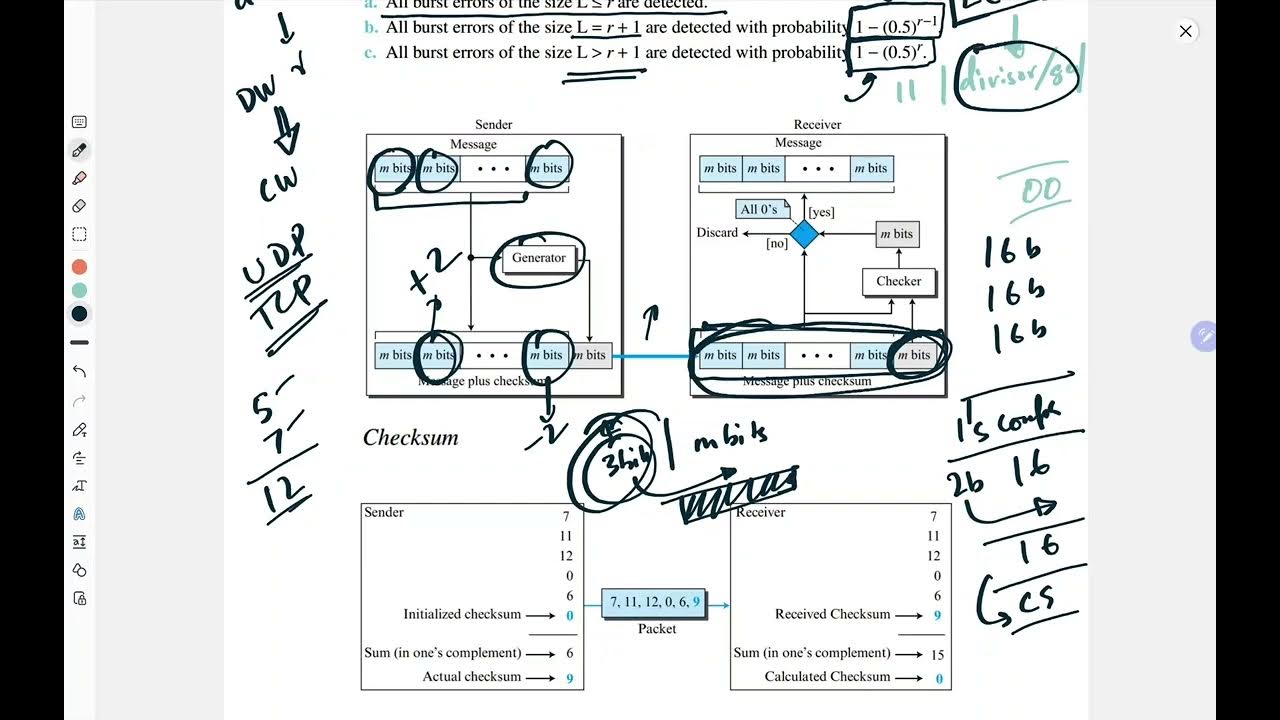 a. All burst errors of the size L ≤ r are detected.
b. All burst errors of the size L = r + 1 are detected with probability 1 − (0.5)^{r−1}
c. All burst errors of the size L > r + 1 are detected with probability 1 − (0.5)^{r}.
divisor/
DW
CW
UDP
TCP
5
7
12
Sender
Message
m bits m bits • • • m bits
Generator
+2
m bits m bits • • • m bits m bits
Message plus checksum
-2
Receiver
Message
m bits m bits • • • m bits
All 0's
[yes]
Discard
[no]
m bits
Checker
m bits m bits • • • m bits m bits
Message plus checksum
00
16b
16b
16b
1's
2b 16
16
CS
Checksum
3bit
m bits
Sender
7
11
12
0
6
Initialized checksum 0
Sum (in one's complement) 6
Actual checksum 9
7, 11, 12, 0, 6, 9
Packet
Receiver
7
11
12
0
6
Received Checksum 9
Sum (in one's complement) 15
Calculated Checksum 0